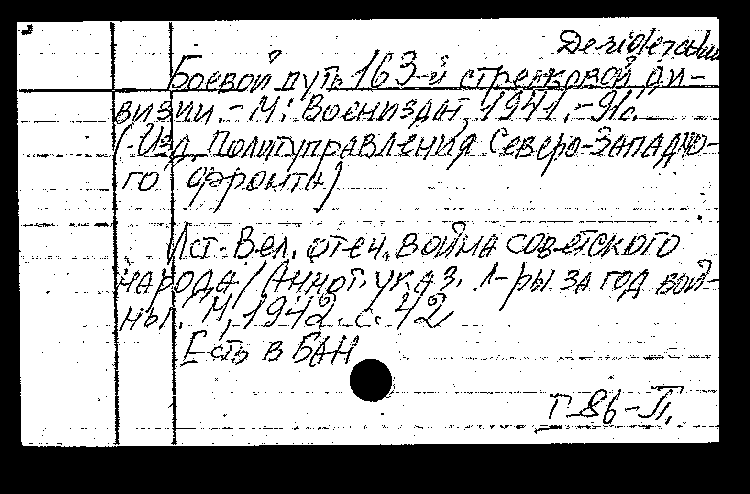 Desiderata
Боевой путь 163-й стрелковой ди-
визии. - М: Воениздат, 1941. - 91с.
(-Изд. Политуправления Северо-Западно-
го фронта)
Ист. Вел. отеч. война советского
народа/Аннот. указ. л-ры за год вой-
ны. М, 1942. с. 42
Есть в БАН
Г-86-П.